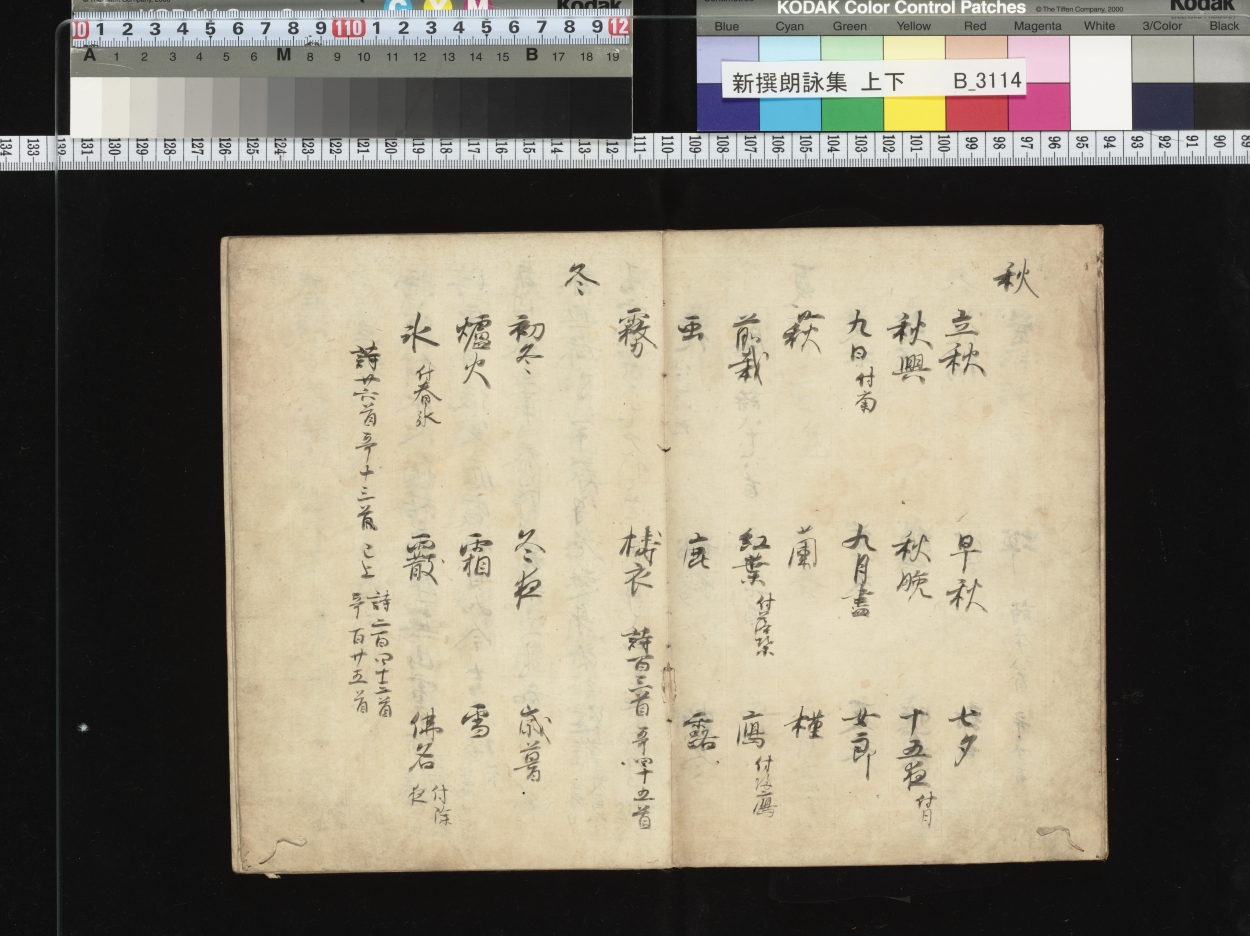 KODAK Color Control Patches
© The Tiffen Company, 2000
Kodak
Kodak
Blue Cyan Green Yellow Red Magenta White 3/Color Black
新撰朗詠集 上下 B_3114
秋
立秋 早秋 七夕
秋興 秋晩 十五夜 付月
九日 付菊 九月盡 女郎
萩 蘭 槿
前栽 紅葉 付落葉 鴈 付帰鴈
虫 鹿 露
霧 擣衣 詩百三首 哥四十五首
冬
初冬 冬夜 歳暮
爐火 霜 雪
氷 付春氷 霰 佛名 付除夜
詩廿六首 哥十三首 已上 詩二百四十二首 哥百廿五首